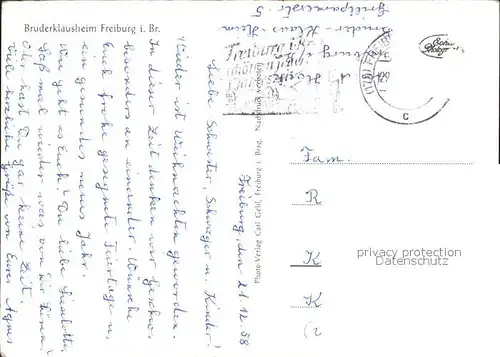 Bruderklausheim Freiburg i. Br.
Freiburg, den 21.12.58
Liebe Schwester, Schwager u. Kinder!
Wieder ist Weihnachten geworden.
In dieser Zeit denken wir Geschw.
besonders an einander. Wünsche
Euch frohe gesegnete Feiertage u.
ein gesundes neues Jahr.
Wie geht es Euch? Du liebe Lieselotte,
laß mal wieder was von Dir hören!
Oder hast Du gar keine Zeit.
Viele herzliche Grüße von Eurer Agnes
Photo-Verlag Carl Gehl, Freiburg i. Brsg. Nachdruck verboten
Bruder-Klaus-Heim
Freiburg
(17b) FREIBURG
c
Echte
Photogr
Fam.
R
K
K
privacy protection
Datenschutz